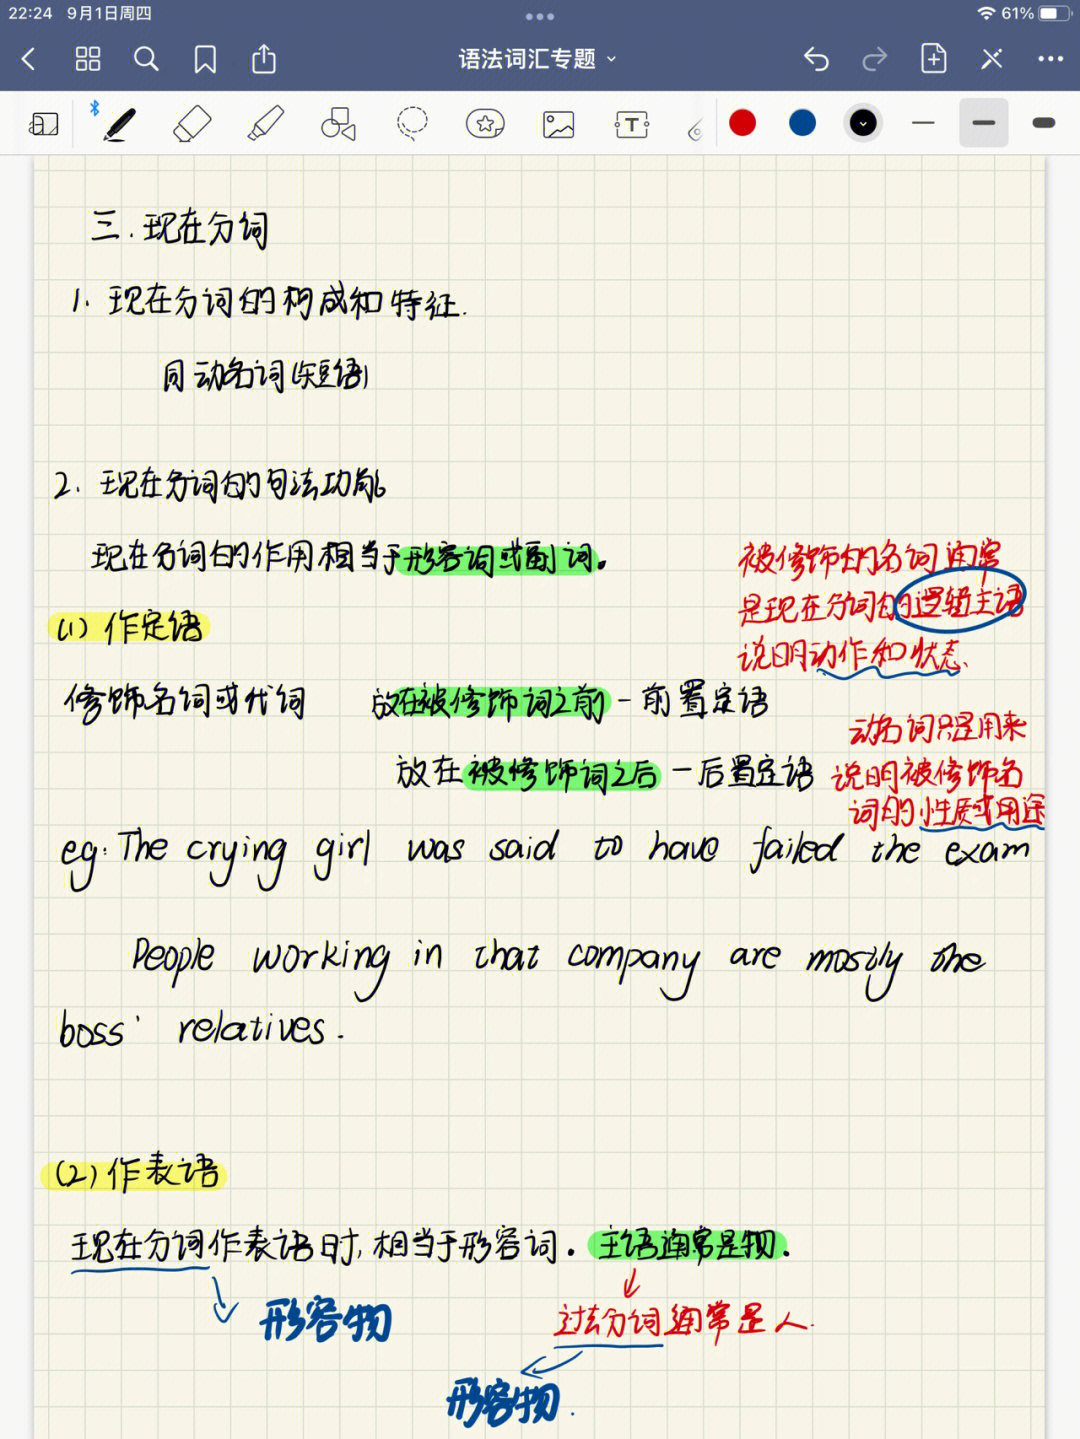 22:24 9月1日周四
61%
语法词汇专题
三.现在分词
1.现在分词的构成和特征.
同动名词(短语)
2.现在分词的句法功能
现在分词的作用相当于形容词或副词。
被修饰的名词通常
是现在分词的逻辑主语
说明动作和状态、
(1)作定语
修饰名词或代词 放在被修饰词之前-前置定语
放在被修饰词之后-后置定语
动名词只是用来
说明被修饰名
词的性质或用途
eg: The crying girl was said to have failed the exam
People working in that company are mostly the
boss' relatives.
(2)作表语
现在分词作表语时,相当于形容词。主语通常是物.
形容物
过去分词通常是人.
形容物.